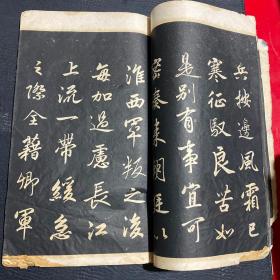 兵按邊風霜已
寒征馭良苦如
是別有事宜可
密奏来朝廷以
淮西軍叛之後
每加過慮長江
上流一帶緩急
之際全藉卿軍